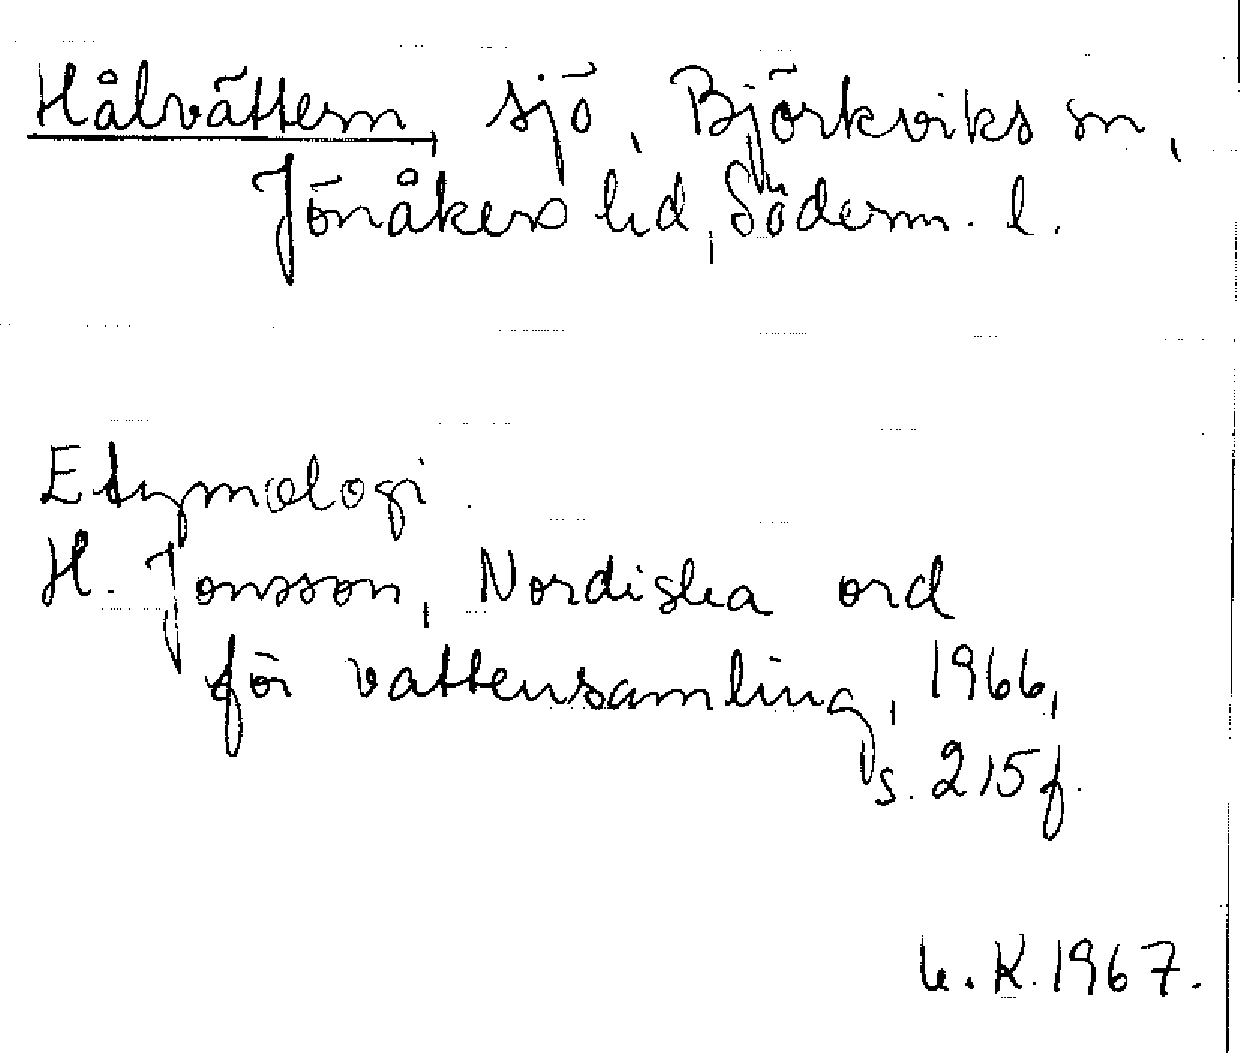 Hålvättern, sjö, Björkviks sn,
Jönåkers hd, Söderm. l.
Etymologi.
H. Jonsson, Nordiska ord
för vattensamling, 1966,
s. 215 f.
K. 1967.